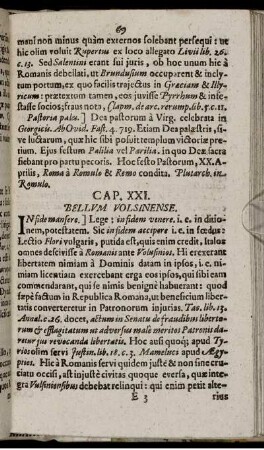 69
mani non minus quàm externos solebant persequi: ut
hic olim voluit Rupertus ex loco allegato Livii lib. 26.
c. 13. Sed Salentini erant sui juris, ob hoc unum hic à
à Romanis debellati, ut Brundusium occuparent & inclytum
portum, ex quo facilis trajectus in Græciam & Illyricum:
prætextum tamen, eos juvisse Pyrrhum & infestasse
socios; fraus nota, Clapm. de arc. rerump. lib. 5. c. 11.
Pastoria pales. ] Dea pastorum à Virg. celebrata in
Georgicis. Ab Ovid. Fast. 4. 719. Etiam Dea palæstris, sive
luctarum, quæ hic sibi posuit templum victoriæ premium.
Ejus festum Palilia vel Parilia. in quo Deæ sacra
fiebant pro partu pecoris. Hoc festo Pastorum, XX. Aprilis,
Roma à Romulo & Remo condita. Plutarch. in
Romulo.
CAP. XXI.
BELLUM VOLSINENSE.
IN fide mansere. ] Lege; in fidem venere. i. e. in ditionem,
potestatem. Sic in fidem accipere i. e. in fœdus:
Lectio Flori vulgaris, putida est, quis enim credit, Italos
omnes defcivisse à Romanis ante Volsinios, Hi exercebant
libertatem nimiam à Dominis datam in ipsos, i. e. nimiam
licentiam exercebant erga eos ipsos, qui sibi eam
commendarant, qui se nimis benignè habuerant: quod
sæpè factum in Republica Romana, ut beneficium libertatis
converteretur in Patronorum injurias. Tac. lib. 13.
Annal. c. 26. docet, actum in Senatu de fraudibus libertorum
& efflagitatum ut adversus malè meritos Patronis daretur
jus revocanda libertatis. Hoc ausi quoq; apud Tyrios
olim servi Justin. lib. 18. c. 3. Mameluci apud Ægyptios.
Hic à Romanis servi quidem justè & non sine cruciatu
occisi, ast injustè civitas quoque eversa, quæ integra
Vulsiniensibus debebat relinqui: qui enim petit alte-
E 3 rius